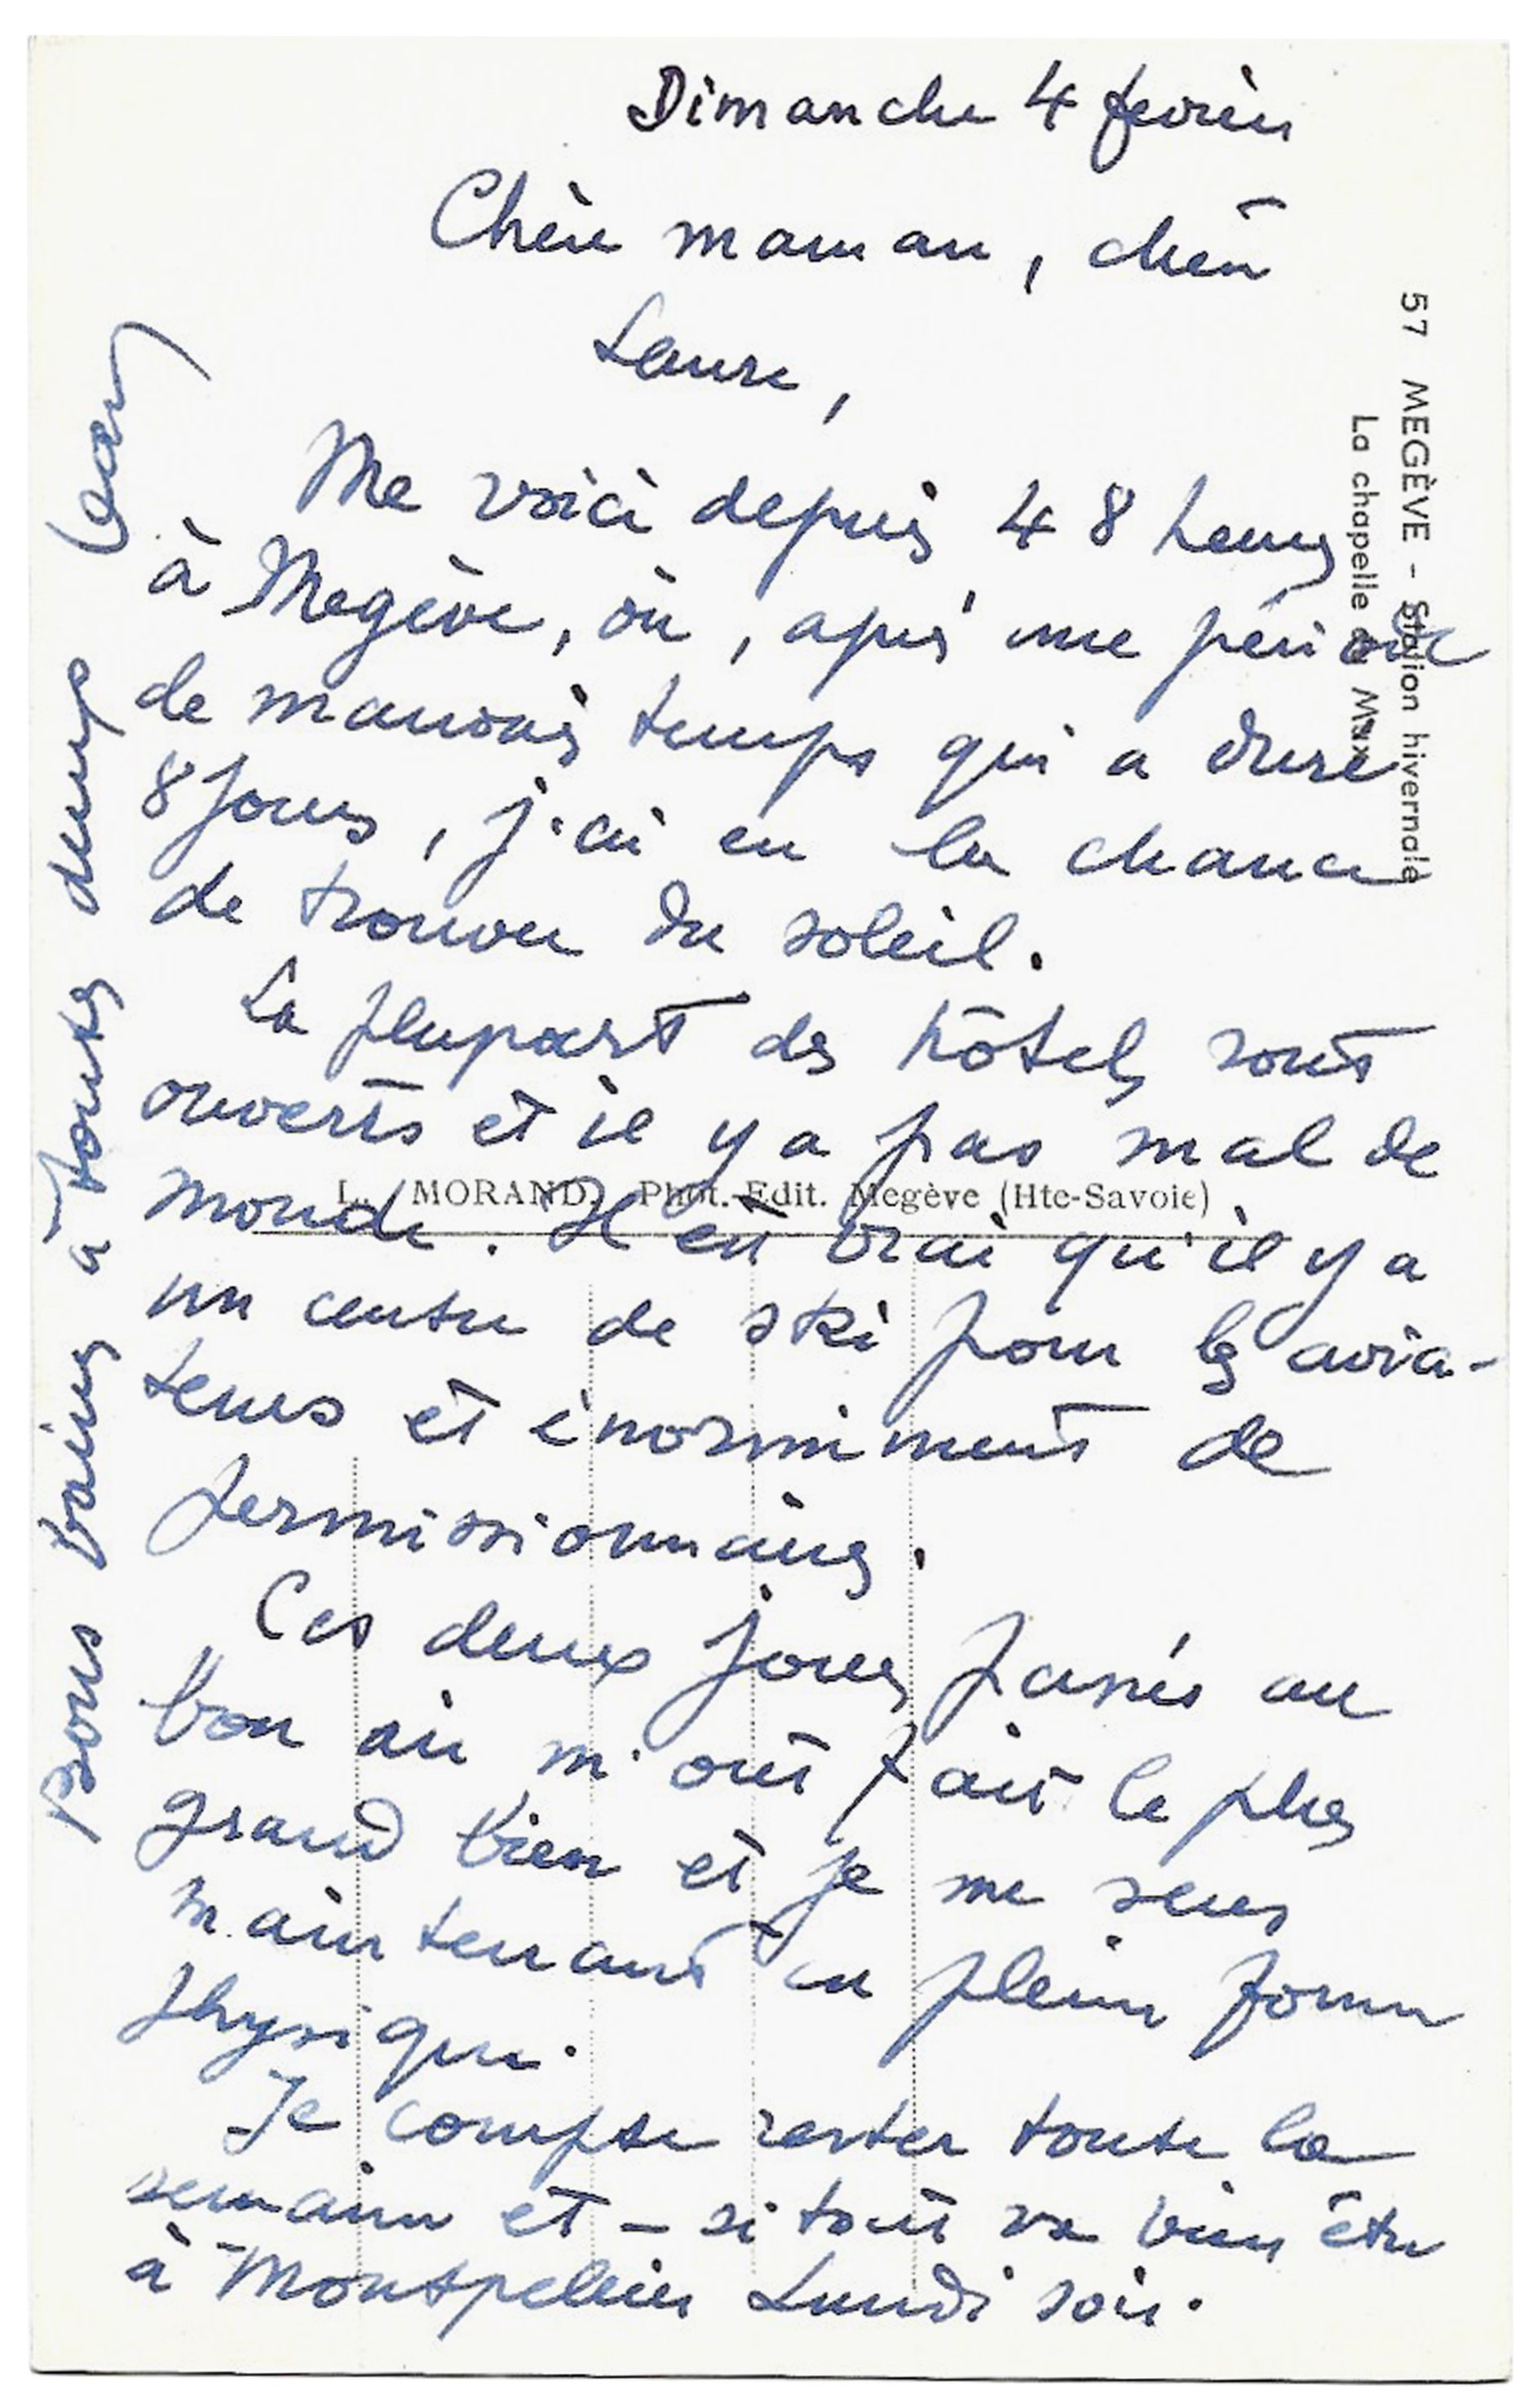 Dimanche 4 février
Chère maman, chère
Laure,
Me voici depuis 48 heures
à Megève, où, après une période
de mauvais temps qui a duré
8 jours, j'ai eu la chance
de trouver du soleil.
La plupart des hôtels sont
ouverts et il y a pas mal de
monde. Il est vrai qu'il y a
un centre de ski pour les avia-
teurs et énormément de
permissionnaires.
Ces deux jours passés au
bon air m'ont fait le plus
grand bien et je me sens
maintenant en pleine forme
physique.
Je compte rester toute la
semaine et – si tout va bien être
à Montpellier Lundi soir.
Bons baisers à toutes deux
Jean
57 MEGÈVE - Station hivernale
La chapelle Max
L. MORAND, Phot.-Edit. Megève (Hte-Savoie)